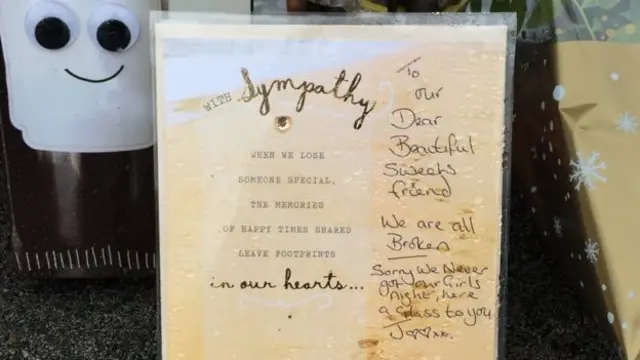 WITH Sympathy
WHEN WE LOSE
SOMEONE SPECIAL,
THE MEMORIES
OF HAPPY TIMES SHARED
LEAVE FOOTPRINTS
in our hearts...
To
our
Dear
Beautiful
Sweets
friend
We are all
Broken
Sorry We Never
got our Girls
night, here
a glass to you